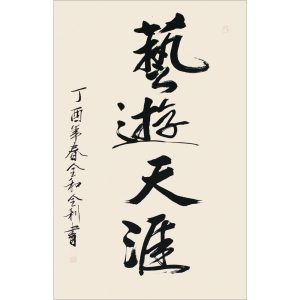 藝遊天涯
丁酉年春全和全利書